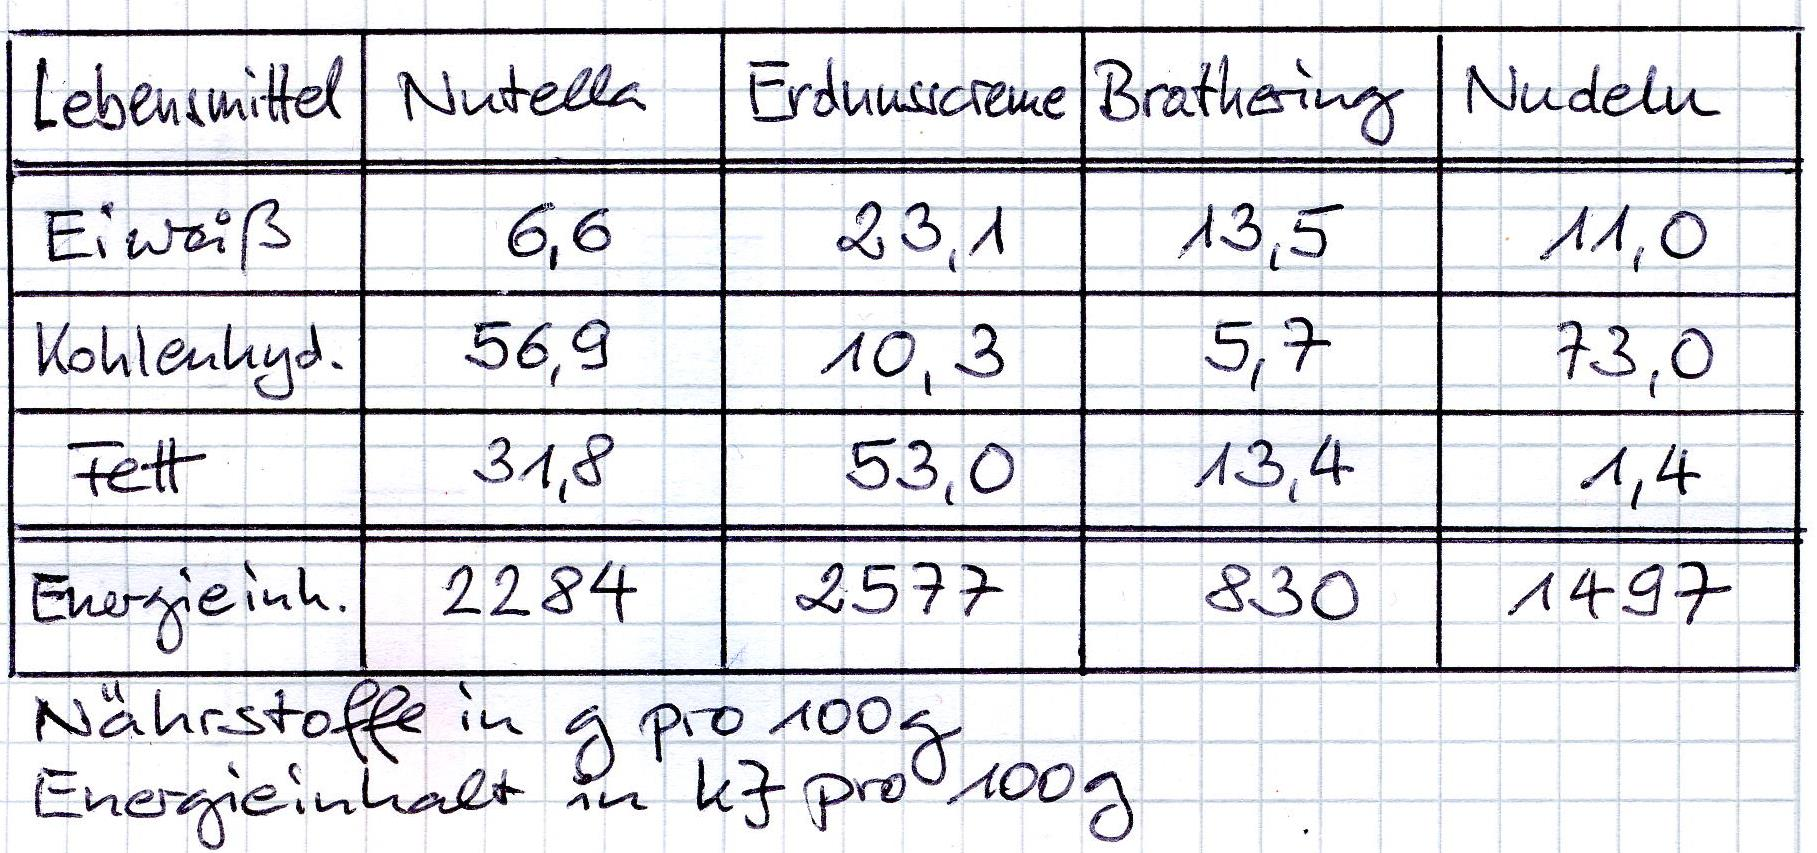 Lebensmittel Nutella Erdnusscreme Brathering Nudeln
Eiweiß 6,6 23,1 13,5 11,0
Kohlenhyd. 56,9 10,3 5,7 73,0
Fett 31,8 53,0 13,4 1,4
Energieinh. 2284 2577 830 1497
Nährstoffe in g pro 100g
Energieinhalt in kJ pro 100g